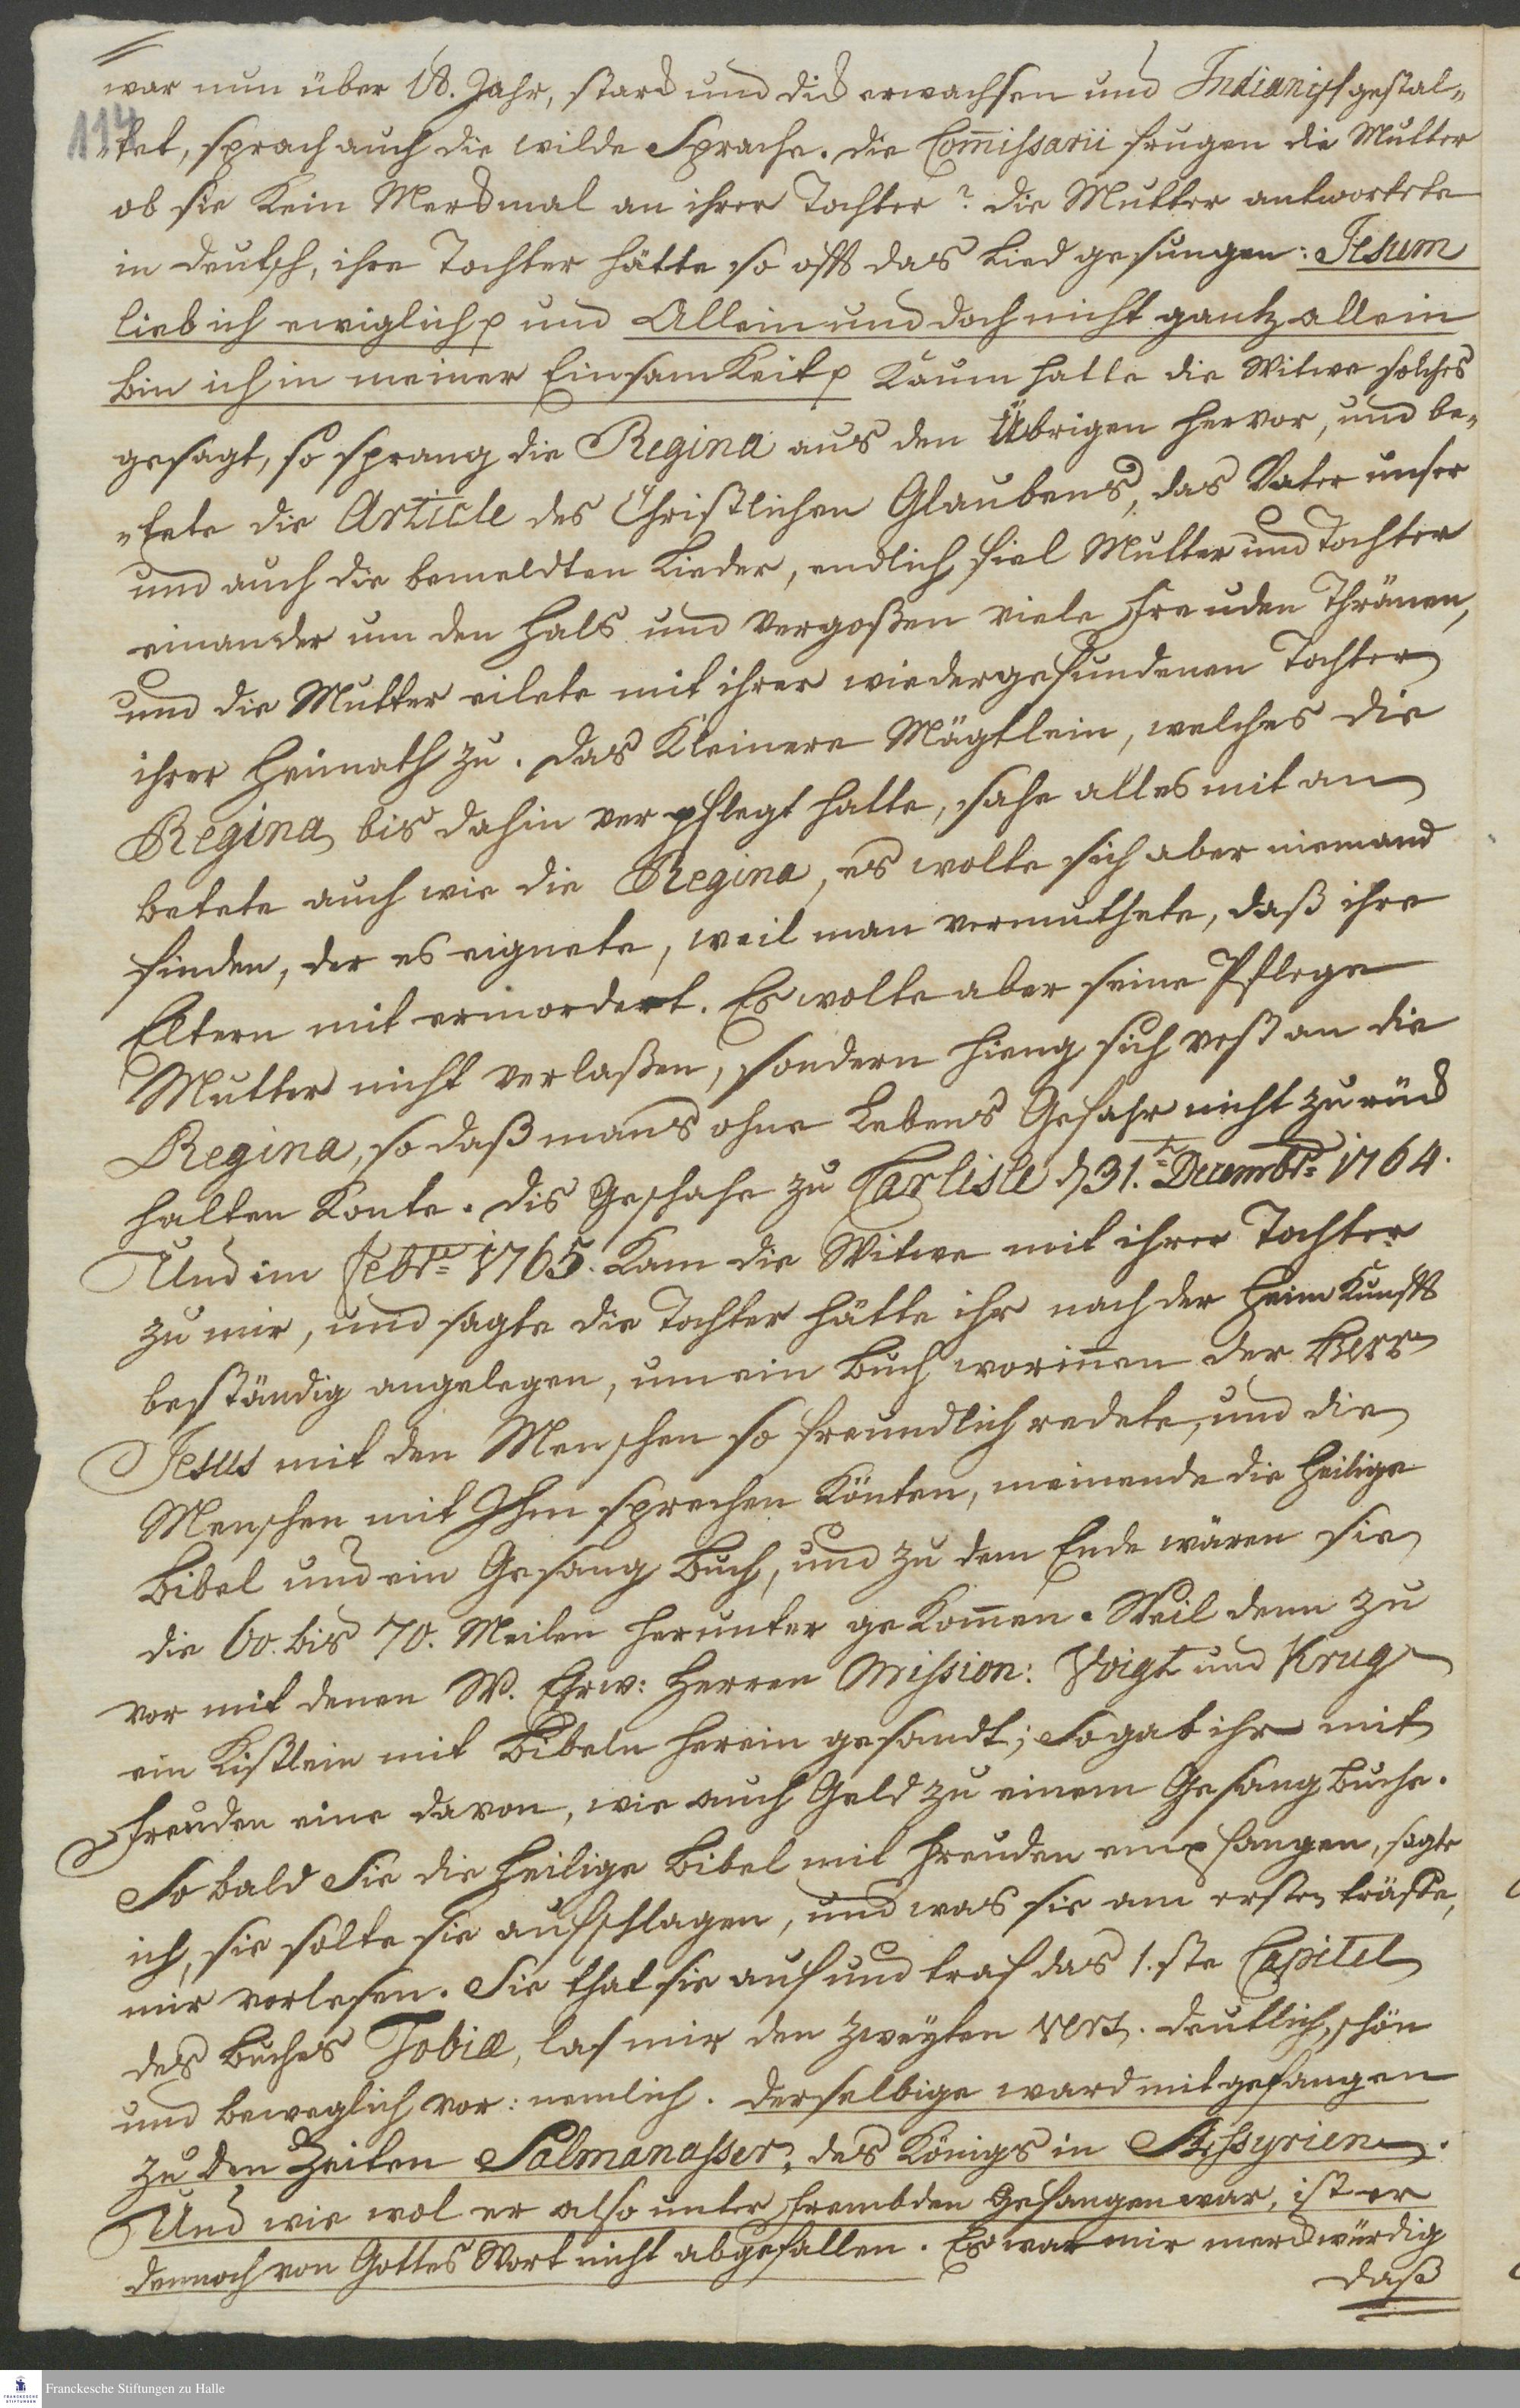 war nun über 18. Jahr, starck und dick erwachsen und Indianisch gestal„
114
„tet, sprach auch die wilde Sprache. die Com̄issarii frugen die Mutter
ob sie kein Merckmal an ihrer Tochter? die Mutter antwortete
in deutsch, ihre Tochter hätte so offt das Lied gesungen: Jesum
lieb ich ewiglich p und Allein und doch nicht gantz allein
bin ich in meiner Einsamkeit p Kaum hatte die Witwe solches
gesagt, so sprang die Regina aus den Übrigen hervor, und be„
„tete die Article des Christlichen Glaubens, das Vater unser
und auch die bemeldten Lieder, endlich fiel Mutter und Tochter
einander um den Hals und vergoßen viele Freuden Thränen,
und die Mutter eilete mit ihrer wiedergefundenen Tochter
ihrer Heimath zu. Das Kleinere Mägtlein, welches die
Regina bis dahin verpflegt hatte, sahe alles mit an
betete auch wie die Regina, es wolte sich aber niemand
finden, der es eignete, weil man vermuthete, daß ihre
Eltern mit ermordert. Es wolte aber seine Pflege
Mutter nicht verlaßen, sondern hieng sich vest an die
Regina, so daß mans ohne Lebens Gefahr nicht zurück
halten Konte. Dis Geschahe zu Carlisle d 31. Decembr: 1764.
Und im Febr: 1765. Kam die Witwe mit ihrer Tochter
zu mir, und sagte die Tochter hätte ihr nach der Heim Kunfft
beständig angelegen, um ein Buch worin̄en der Herr
Jesus mit den Menschen so freundlich redete, und die
Menschen mit Ihm sprechen Könten, meinende die Heilige
Bibel und ein Gesang Buch, und zu dem Ende wären sie
die 60. bis 70. Meilen herunter gekom̄en. Weil denn zu
vor mit denen W. Ehrw: Herren Mission: Voigt und Krug
ein Kistlein mit Bibeln herein gesandt; So gab ihr mit
Freuden eine davon, wie auch Geld zu einem Gesang Buche.
So bald Sie die Heilige Bibel mit Freuden empfangen, sagte
ich, sie solte sie aufschlagen, und was sie am ersten träffe,
mir vorlesen. Sie that sie auf und traf das 1. ste Capitel
des Buches Tobiæ, las mir den zweyten Vers. deutlich, schön
und beweglich vor: nemlich. Derselbige ward mit gefangen
zu den Zeiten Salmanasser, des Königs in Assyrien.
Und wie wol er also unter Frembden Gefangen war, ist er
dennoch von Gottes Wort nicht abgefallen. Es war mir merckwürdig
daß
Franckesche Stiftungen zu Halle